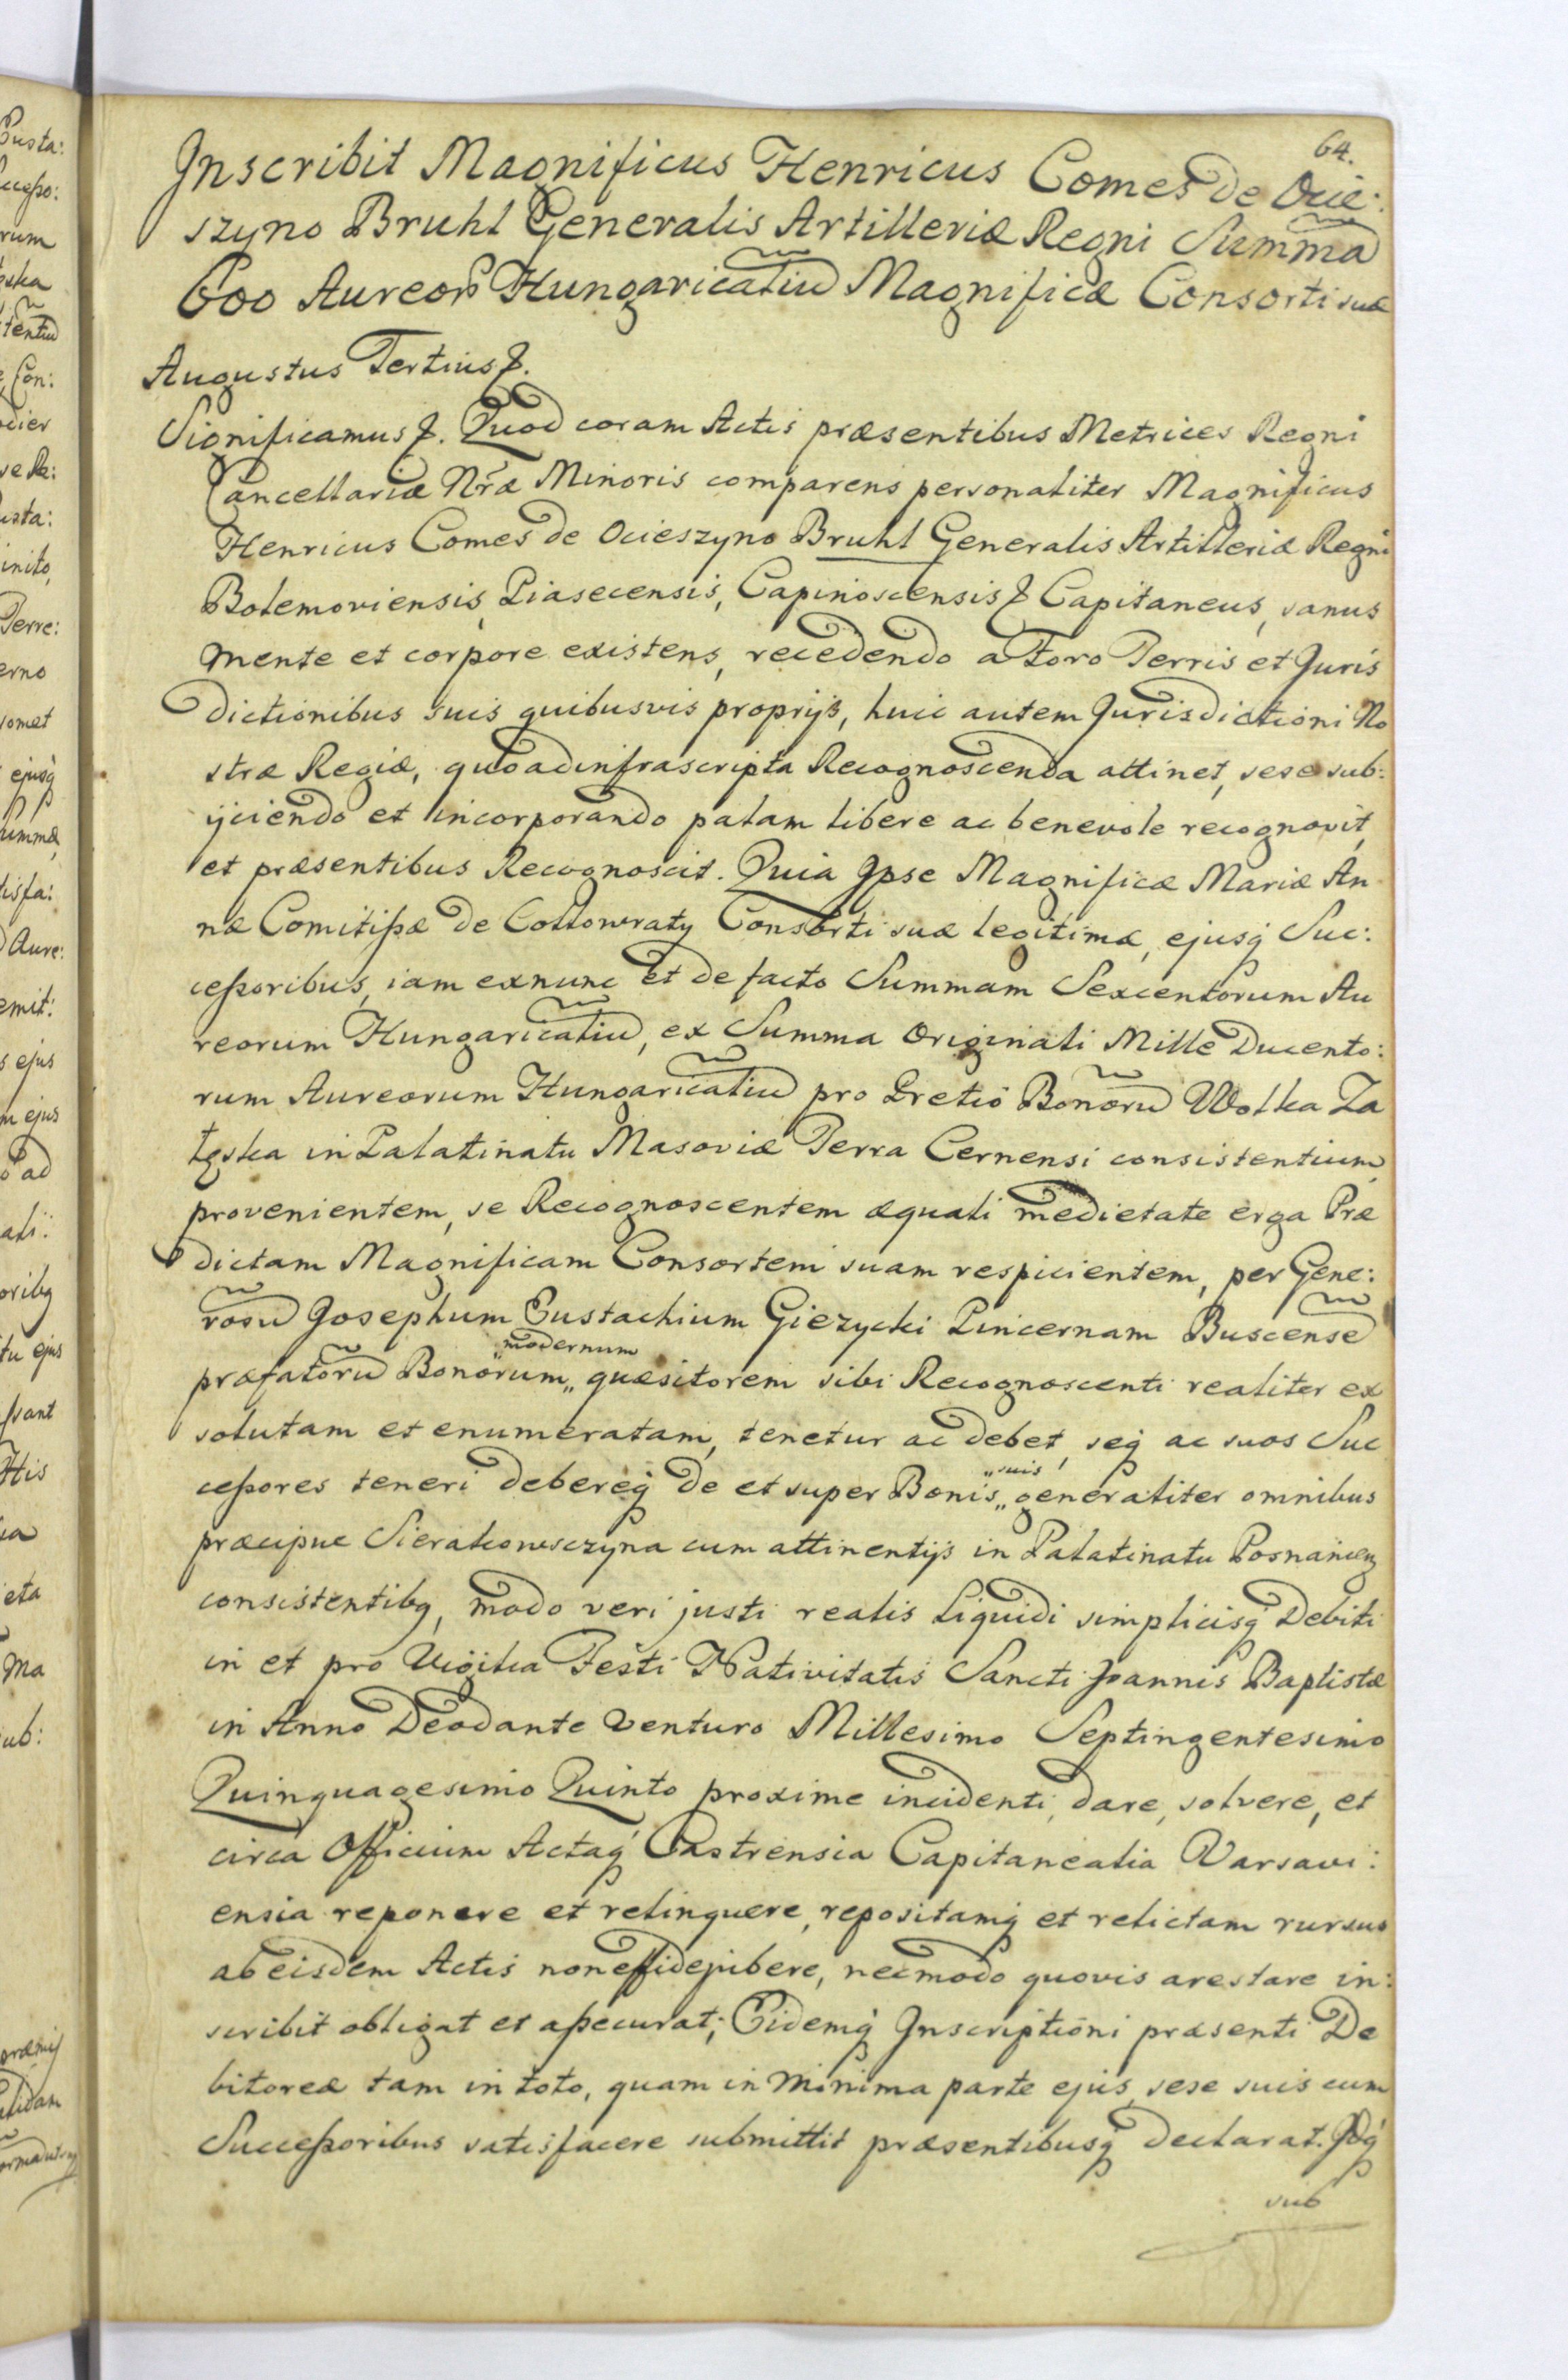 64.
Inscribit Magnificus Henricus Comes de Ocie:
szyno Bruhl Generalis Artilleriæ Regni Summã
600 Aureorũ Hungaricaliũ Magnificæ Consorti suæ
Augustus Tertius &.
Significamus &. Quod coram Actis præsentibus Metrices Regni
Cancellariæ Nr̃æ Minoris comparens personaliter Magnificus
Henricus Comes de Ocieszyno Bruhl Generalis Artilleriæ Regni
Bolemoviensis, Piasecensis, Capinoscensis & Capitaneus, sanus
mente et corpore existens, recedendo a Foro Terris et Juris
dictionibus suis quibusvis proprijs, huic autem Jurisdictioni No
stræ Regiæ, quo ad infrascripta Recognoscenda attinet, sese sub:
ijciendo et incorporando palam libere ac benevole recognovit,
et præsentibus Recognoscit. Quia Ipse Magnificæ Mariæ An
næ Comitißæ de Collowraty Consorti suæ legitimæ, ejusq́ Suc:
ceßoribus, iam exnunc et de facto Summam Sexcentorum Au
reorum Hungaricaliũ, ex Summa Originali Mille Ducento:
rum Aureorum Hungaricaliũ pro Pretio Bonorũ Wolka Za
łęska in Palatinatu Masoviæ Terra Cernensi consistentium,
provenientem, se Recognoscentem æquali medietate erga Præ
dictam Magnificam Consortem suam respicientem, per Gene:
rosũ Josephum Eustachium Giezycki Pincernam Buscensẽ
præfatorũ Bonorum „modernum„ quæsitorem sibi Recognoscenti realiter ex
solutam et enumeratam, tenetur ac debet, seq́ ac suos Suc
ceßores teneri debereq́ de et super Bonis „suis„ generaliter omnibus
præcipue Sierakowsczyna cum attinentijs in Palatinatu Posnanień
consistentibq, modo veri justi realis Liquidi simplicisq́ Debiti
in et pro Vigilia Festi Nativitatis Sancti Joannis Baptistæ
in Anno Deodante venturo Millesimo Septingentesimo
Quinquagesimo Quinto proxime incidenti, dare, solvere, et
circa Officium Actaq́ Castrensia Capitanealia Varsavi:
ensia reponere et relinquere, repositamq́ et relictam rursus
ab eisdem Actis non effidejubere, nec modo quovis arestare in:
scribit obligat et aßecurat; Eidemq́ Inscriptioni præsenti De
bitoreæ tam in toto, quam in minima parte ejus, sese suis cum
Succeßoribus satisfacere submittit præsentibusq́ declarat. Idq́
sub